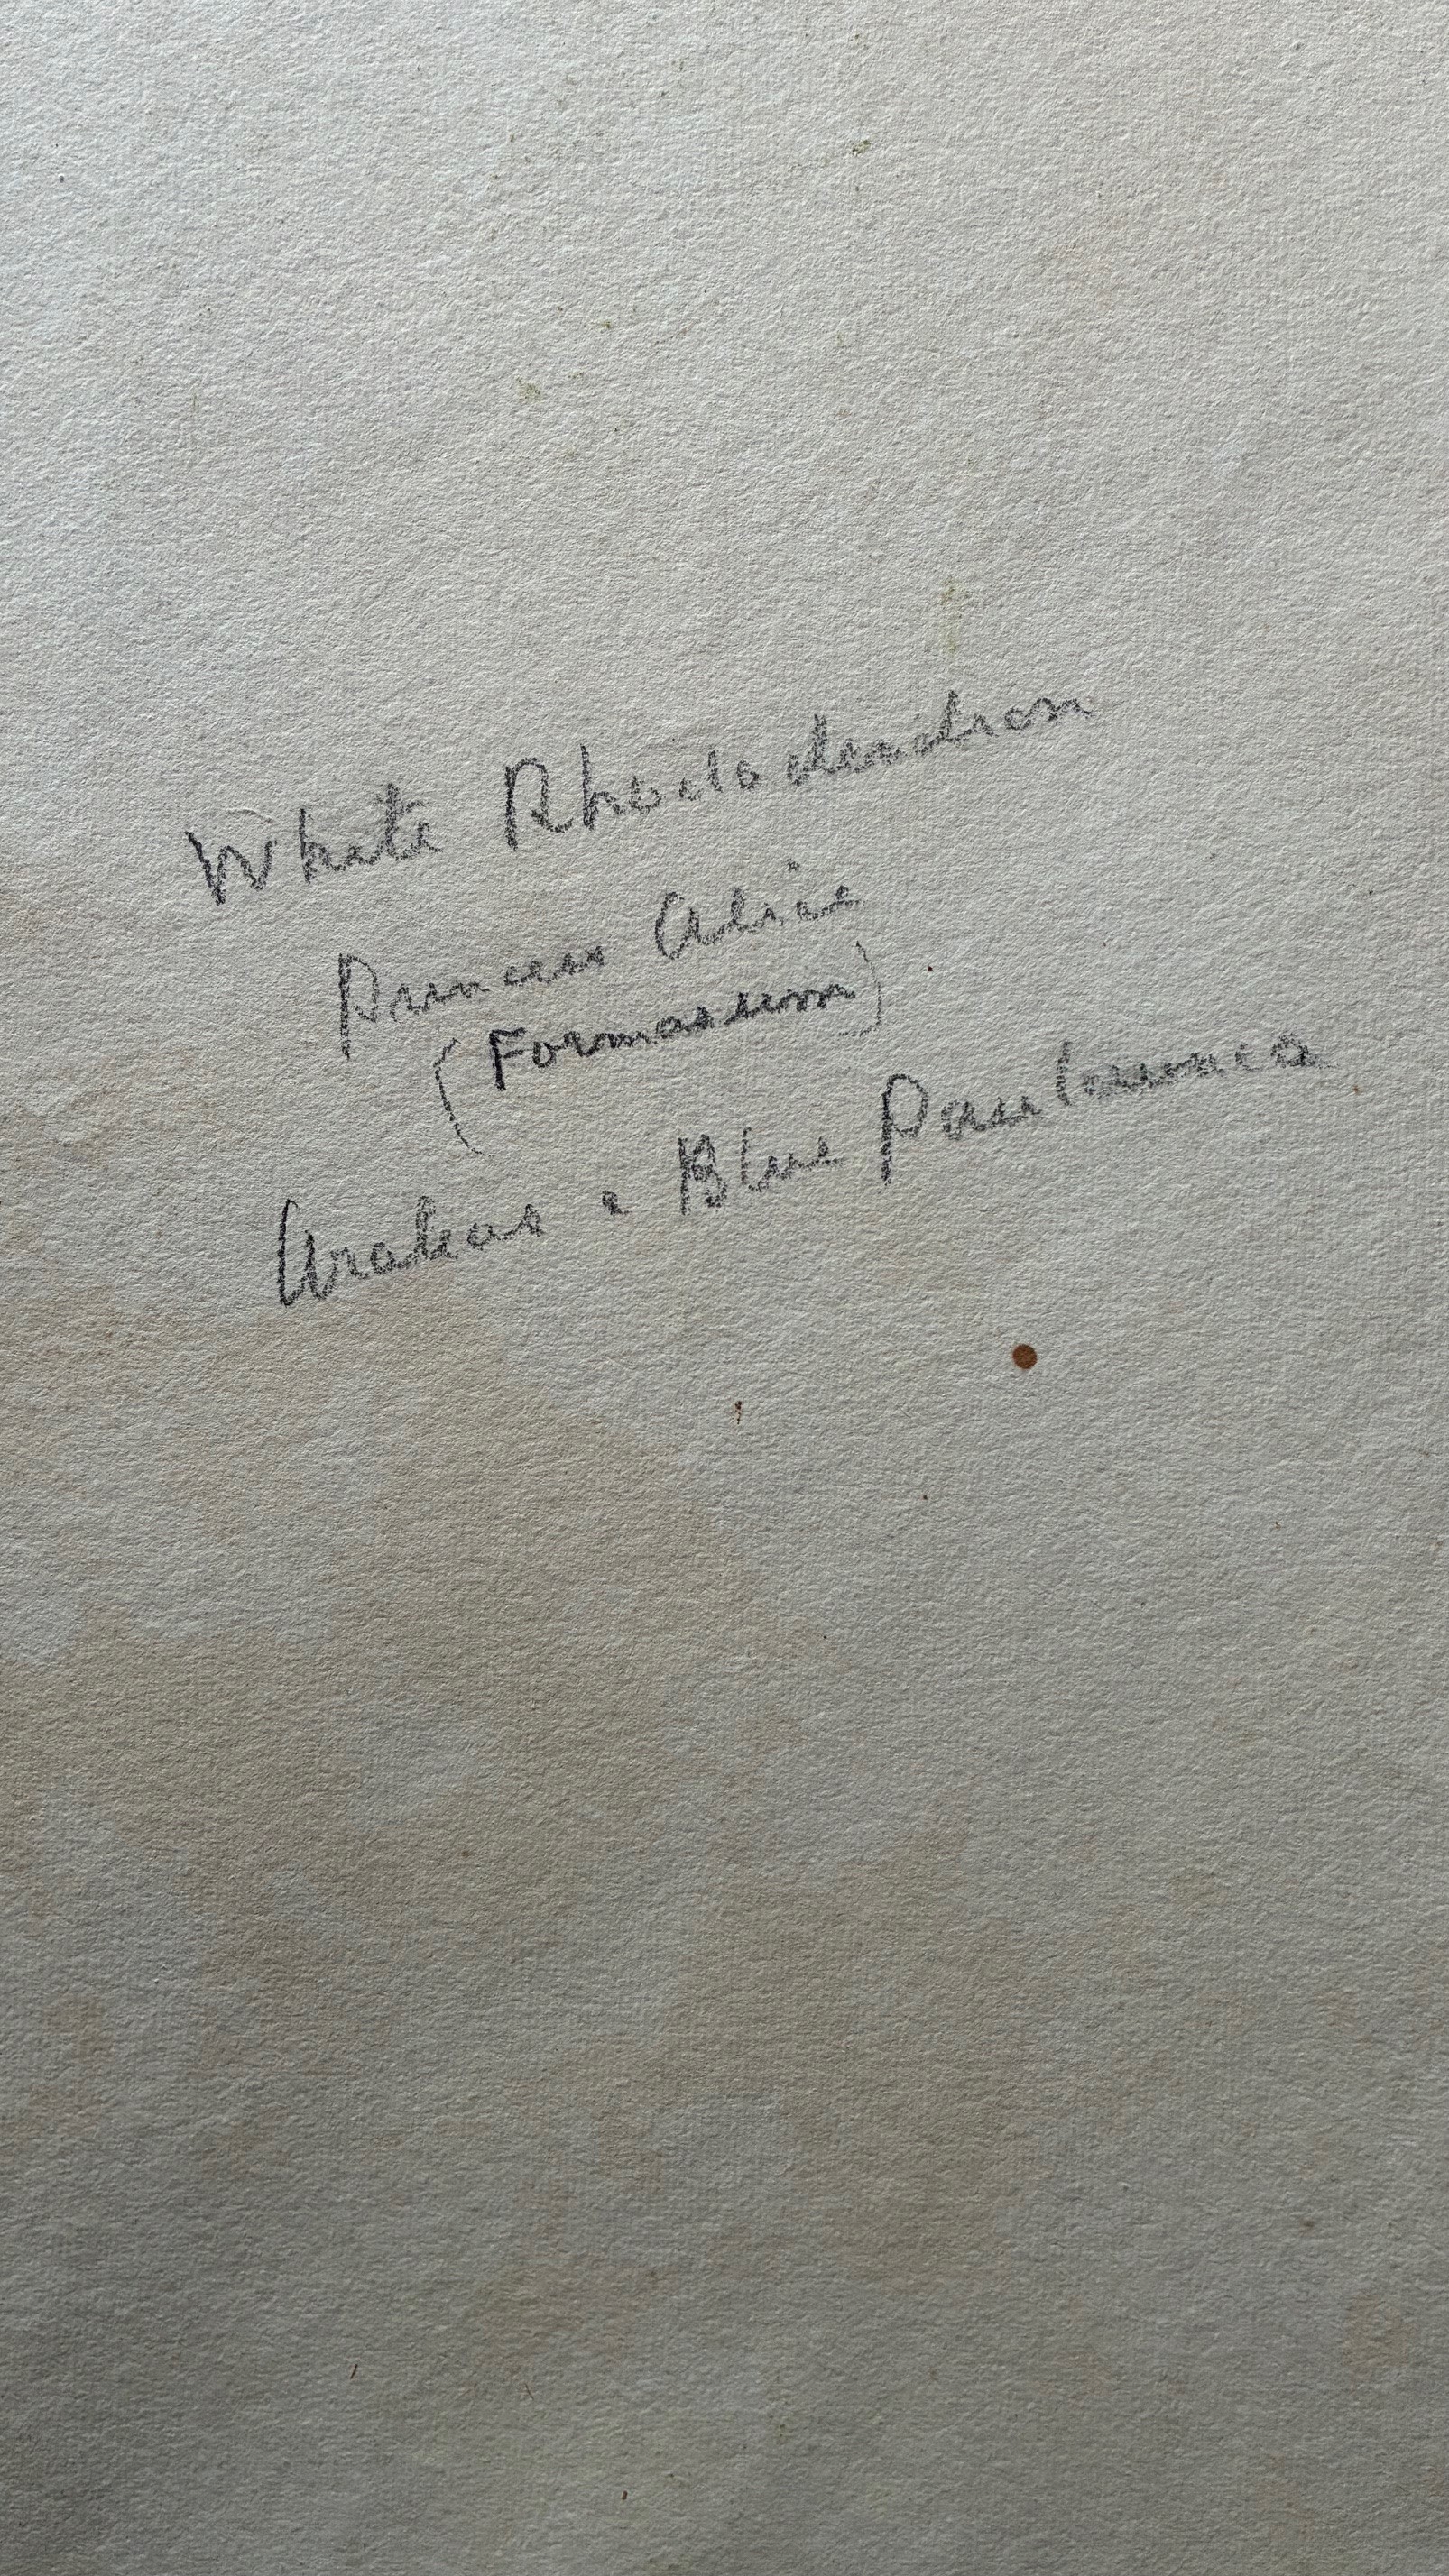 White Rhododendron
Princess Alice
(Formosum)
Blue Paulownia